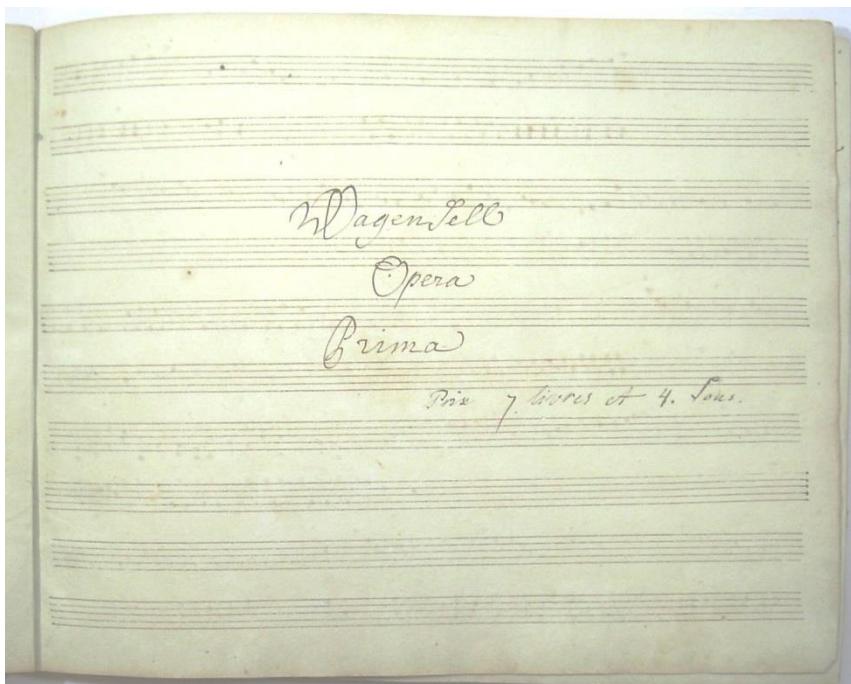 Wagensell
Opera
Prima
Prix 7 livres et 4. Sous.